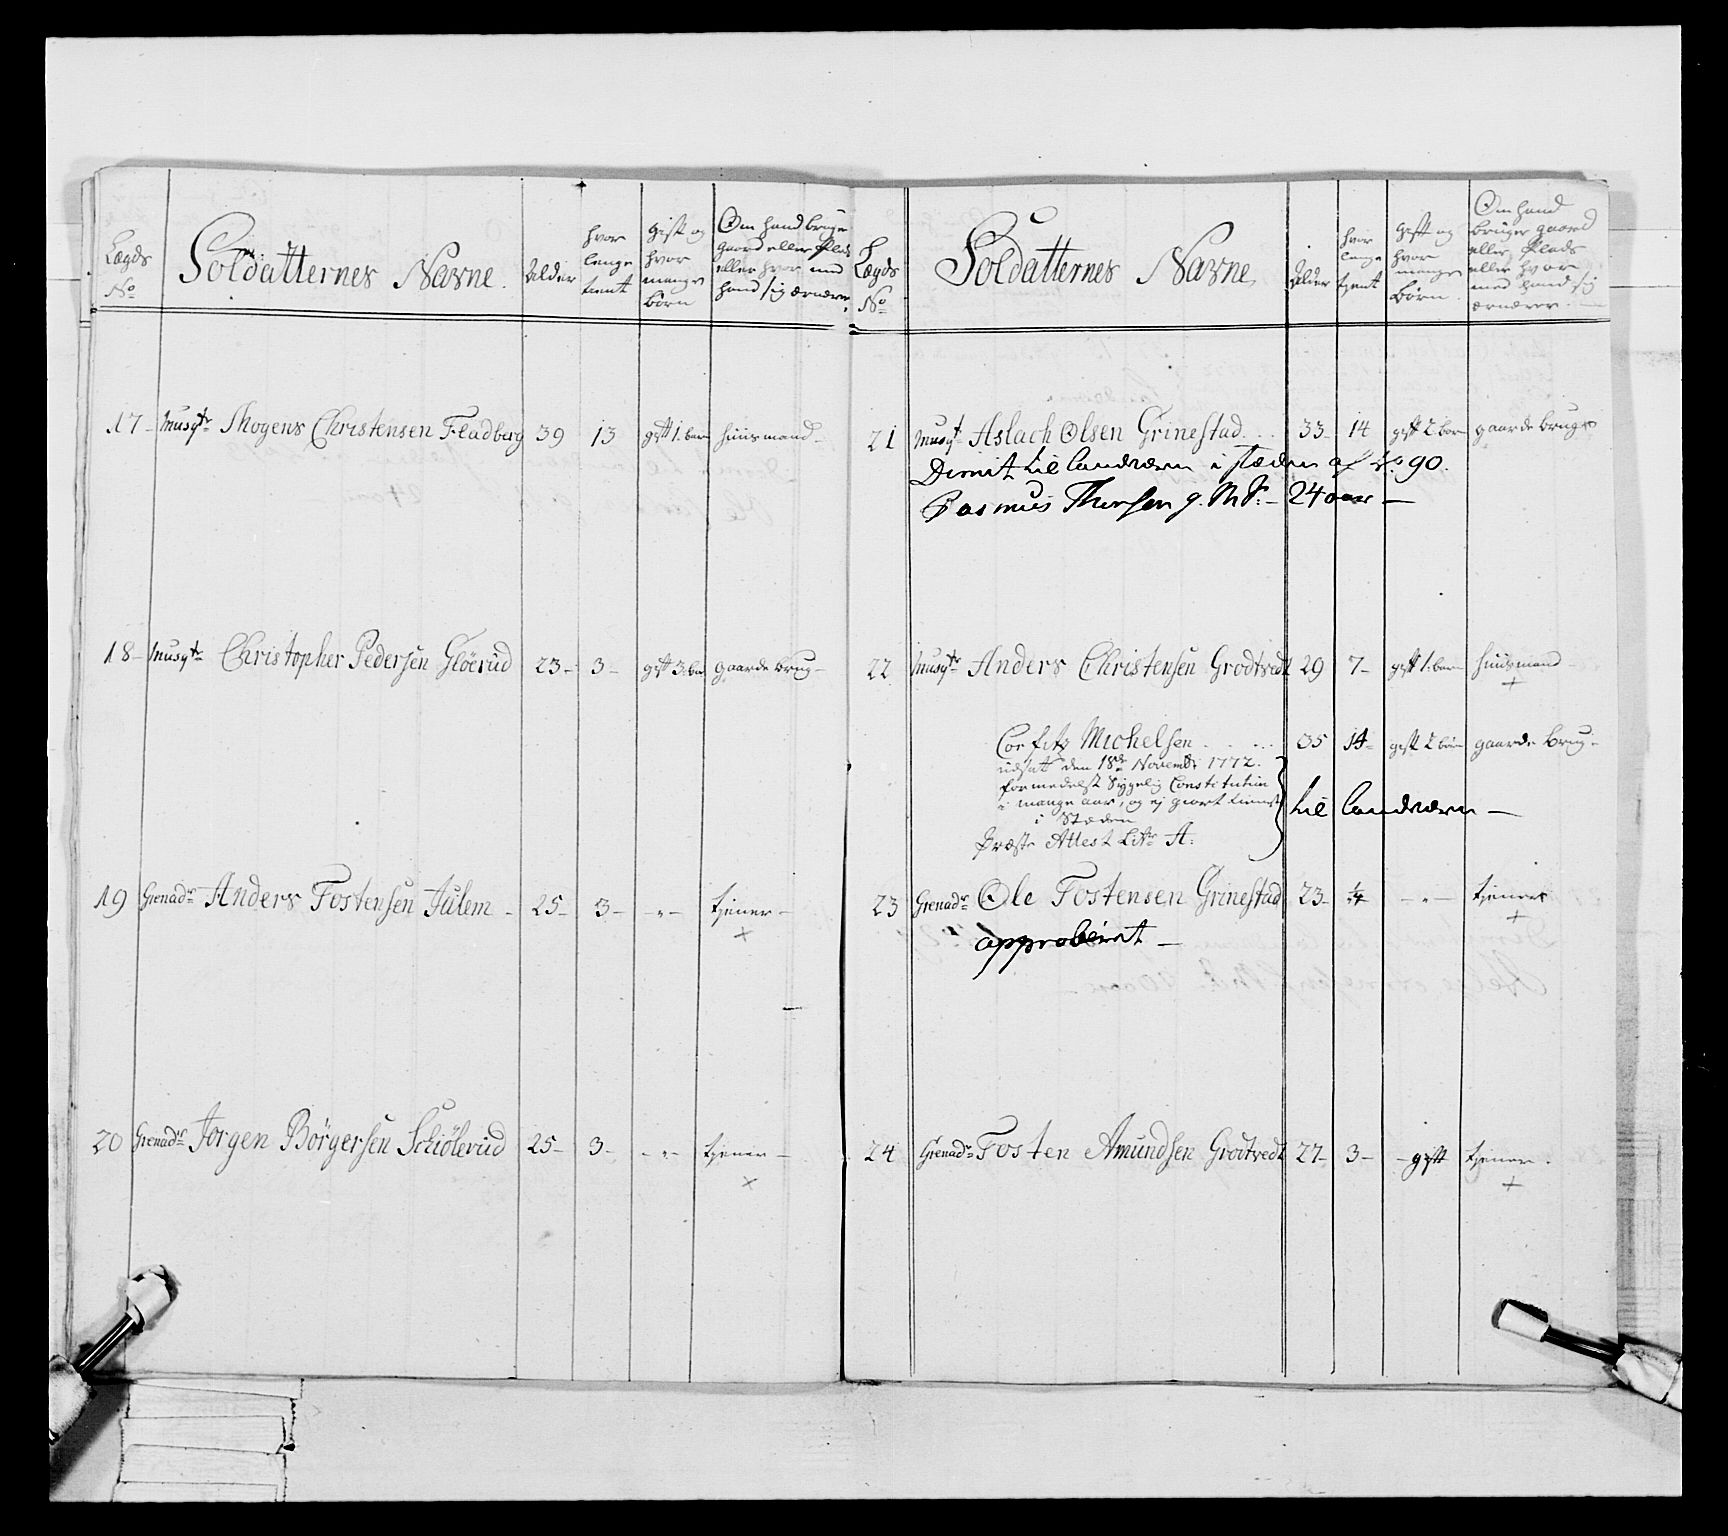 Lægds No
Soldatternes Navne.
Alder
hvor lenge tient
Gift og hvor mange børn
Om hand bruger gaard eller Plads eller hvor med hand sig ernærer.
17- Musqtr Mogens Christensen Fladberg 39 13 gift 1. barn huusmand-
18- Musqtr Christopher Pedersen Gloerud 23- 3- gift 3. bør gaarde brug-
19 Grenadr Anders Tostensen Julem - 25- 3- -"- tjener -
+
20 Grenadr Jørgen Børgersen Schiølerud 25- 3- -"- tjener -
x
Lægds No
Soldatternes Navne
Alder
hvor lenge tient
Gift og hvor mange børn.
Om hand bruger gaard eller Plads eller hvor med hand sig ernærer.
21 Musqt Aslach Olsen Grinestad... 33- 14 gift 2 børn gaarde bruger
Dimit til landværn i stæden af No 90.
Rasmus Thorsen g. M S:- 24 aar -
22 Musqtr Anders Christensen Grodtvedt 29 7- gift 1. barn huusmand
+
Corfitz Michelsen..... 35 14- gift 2 børn gaarde brug-
udsat den 18de Novembr 1772.
formedelst Sygelig Constitution
i mange aar, og ej giort tieneste
i Stæden
Præste Attest Litr A:
til landværn -
23 Grenadr Ole Tostensen Grinestad 23- -"- tjener
+
approberet -
24 Grenadr Tosten Amundsen Grodtvedt 27- 3- - gift tjener.
+